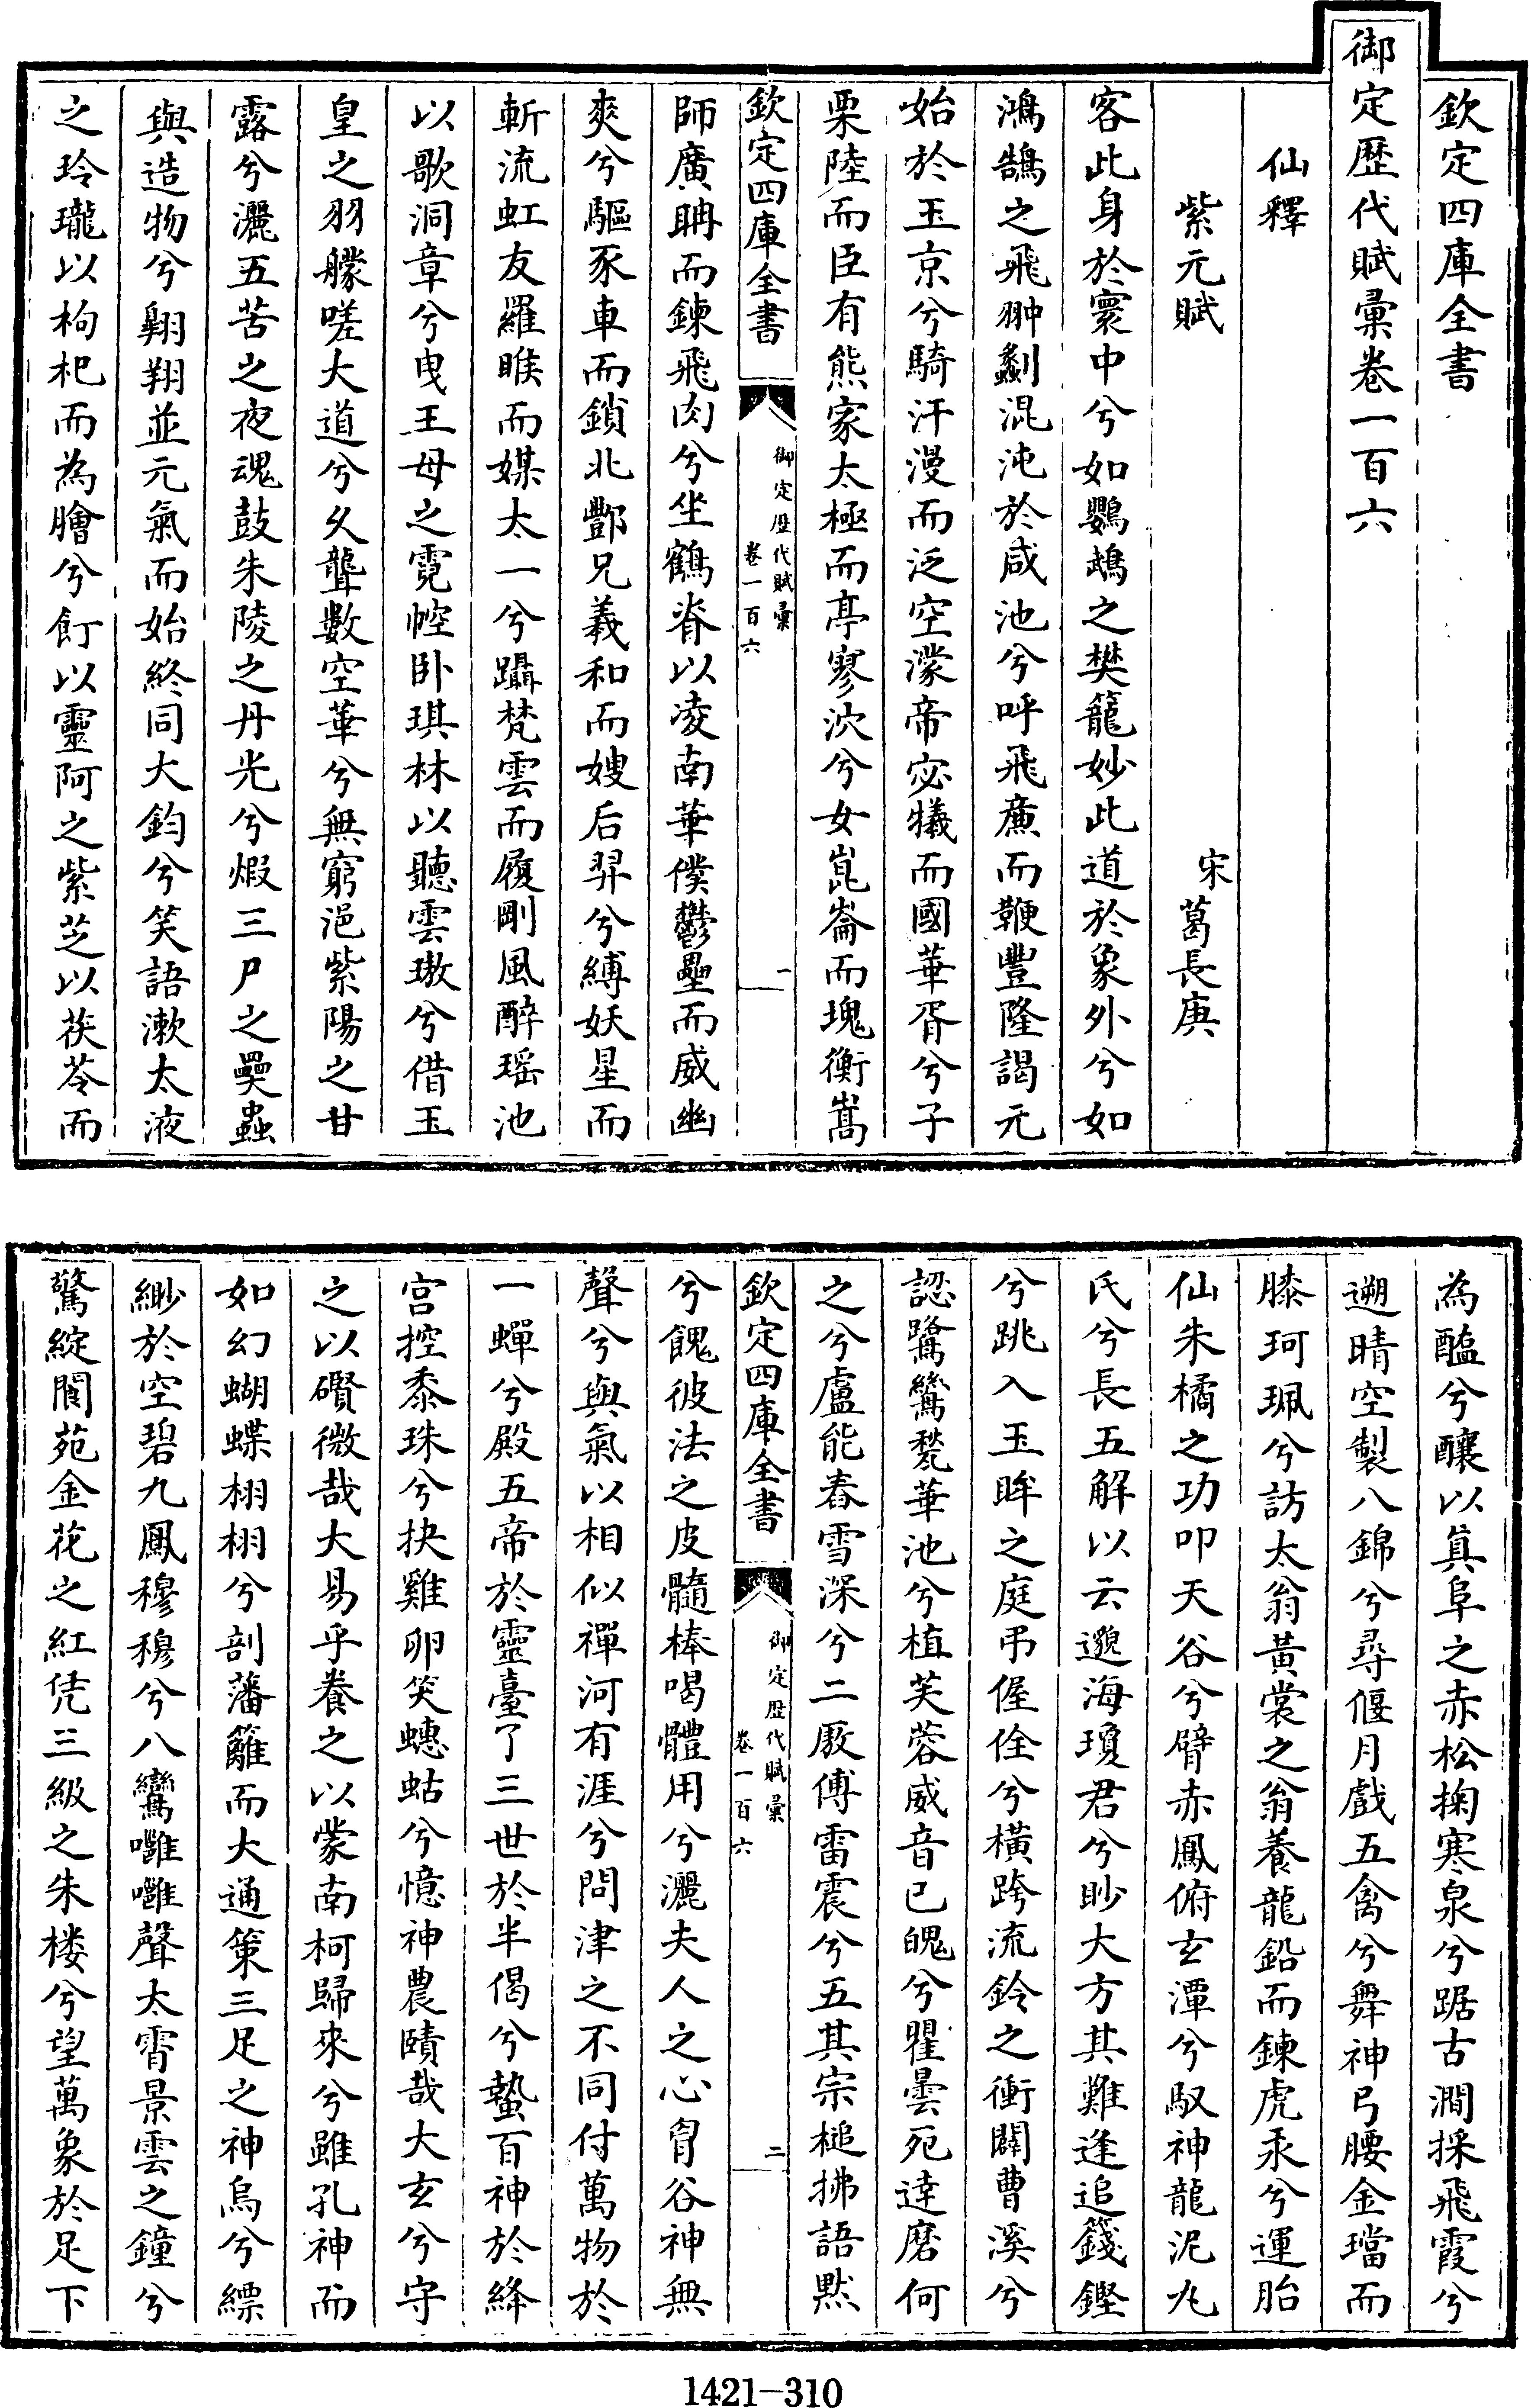 欽定四庫全書
御定歴代賦彙卷一百六
仙釋
紫元賦
宋葛長庚
客此身於寰中兮如鸚鵡之樊籠妙此道於象外兮如
鴻鵠之飛翀劙混沌於咸池兮呼飛廉而鞭豐隆謁元
始於玉京兮騎汗漫而泛空濛帝宓犧而國華胥兮子
栗陸而臣有熊家太極而亭寥泬兮女崑崙而瑰衡嵩
欽定四庫全書
御定歴代賦彙
卷一百六
一
師廣聃而鍊飛肉兮坐鶴脊以凌南華僕鬱壘而威幽
爽兮驅豕車而鎖北酆兄義和而嫂后羿兮縛妖星而
斬流虹友羅睺而媒太一兮躡梵雲而履剛風醉瑶池
以歌洞章兮曳王母之霓幢卧琪林以聽雲璈兮借玉
皇之羽艨嗟大道兮乆聾數空華兮無窮浥紫陽之甘
露兮灑五苦之夜魂鼓朱陵之丹光兮煆三尸之爂蟲
與造物兮翱翔並元氣而始終同大鈞兮笑語漱太液
之玲瓏以枸杞而為膾兮飣以靈阿之紫芝以茯苓而
為醢兮釀以真阜之赤松掬寒泉兮踞古澗採飛霞兮
遡晴空製八錦兮尋偃月戲五禽兮舞神弓腰金璫而
膝珂珮兮訪太翁黃裳之翁養龍鉛而鍊虎汞兮運胎
仙朱橘之功叩天谷兮臂赤鳳俯玄潭兮馭神龍泥丸
氏兮長五解以云邈海瓊君兮眇大方其難逢追籛鏗
兮跳入玉眸之庭弔偓佺兮橫跨流鈴之衝闢曹溪兮
認鷺鷥甃華池兮植芙蓉威音已醜兮瞿曇死達磨何
之兮盧能舂雪深兮二厫傅雷震兮五其宗槌拂語黙
欽定四庫全書
御定歴代賦彙
卷一百六
二
兮餽彼法之皮髓棒喝體用兮灑夫人之心胷谷神無
聲兮與氣以相似禪河有涯兮問津之不同付萬物於
一蟬兮殿五帝於靈臺了三世於半偈兮蟄百神於絳
宫控黍珠兮抉雞卵笑蟪蛄兮憶神農賾哉大玄兮守
之以礥微哉大易乎養之以蒙南柯歸來兮雖孔神而
如幻蝴蝶栩栩兮剖藩籬而大通策三足之神烏兮縹
緲於空碧九鳳穆穆兮八鸞囃囃聲太霄景雲之鐘兮
驚綻閬苑金花之紅凭三級之朱楼兮望萬象於足下
1421-310